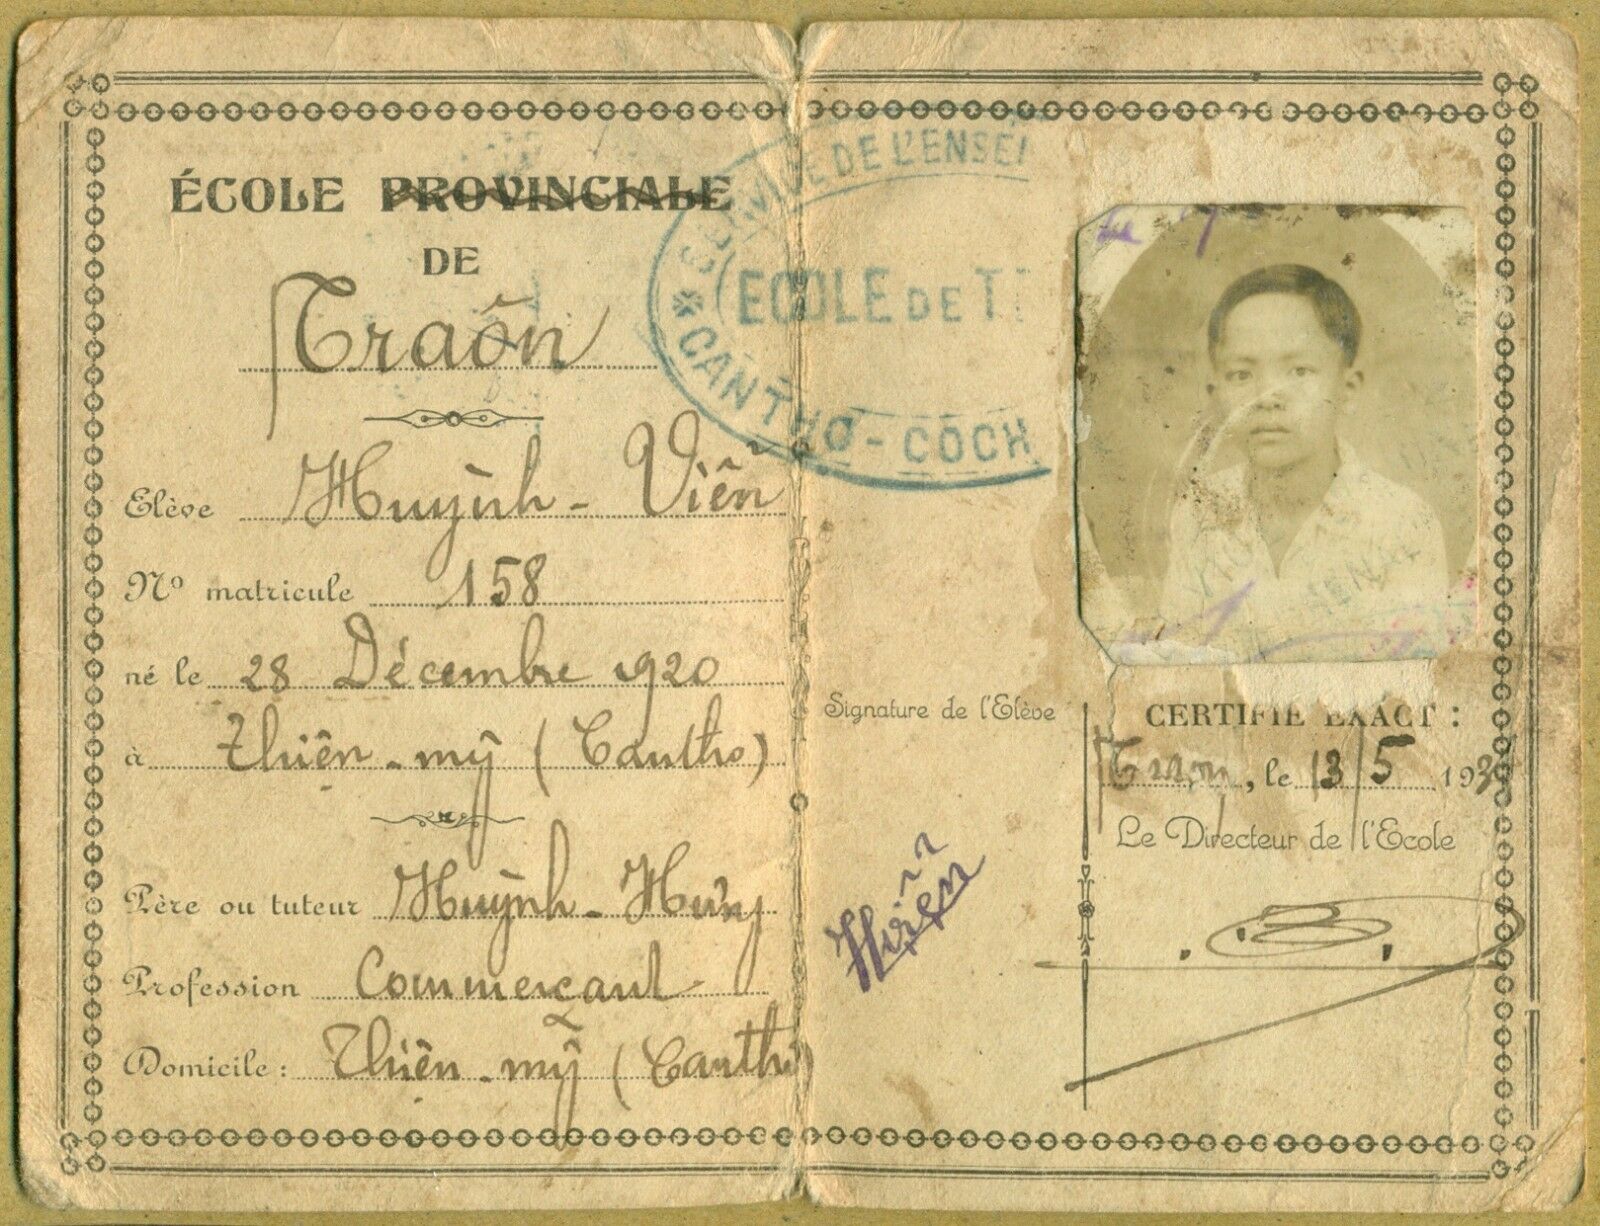 ÉCOLE PROVINCIALE
DE
Traôn
Elève Huỳnh - Viễn
No matricule 158
né le 28 Décembre 1920
à Thiện-mỹ (Cantho)
Père ou tuteur Huỳnh - Hưng
Profession Commerçant
Domicile : Thiện-mỹ (Cantho)
SERVICE DE L'ENSEI
ECOLE DE T
CANTHO - COCH
Signature de l'Elève
CERTIFIÉ EXACT :
, le 13/5 193
Le Directeur de l'Ecole